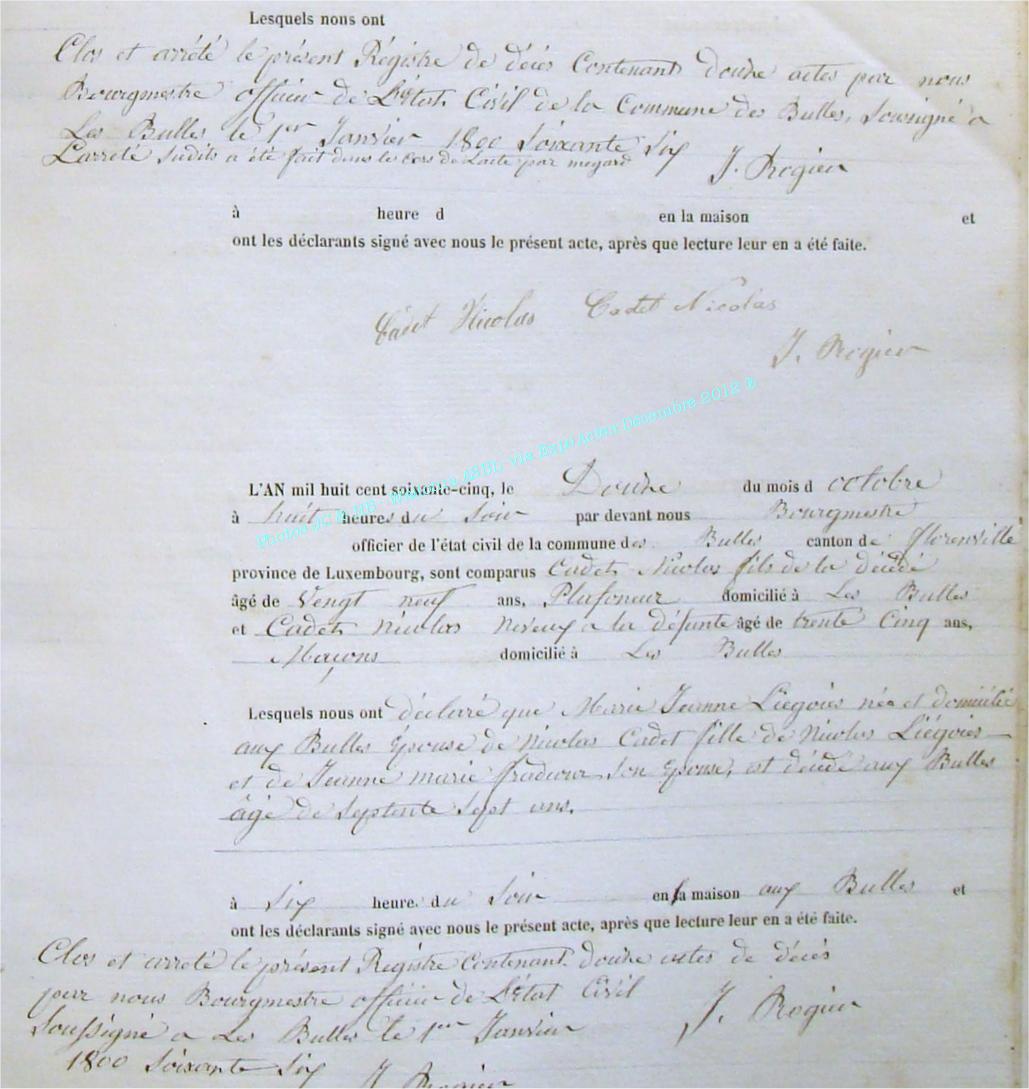 Lesquels nous ont
Clos et arrêté le présent Régistre de décès Contenant douze actes par nous
Bourgmestre officier de L'état Civil de la Commune des Bulles, Soussigné a
Les Bulles le 1er Janvier 1800 Soixante Six
L'arreté Sudits a été fait dans le Cors de L'acte par megard J. Rogier
à heure d en la maison et
ont les déclarants signé avec nous le présent acte, après que lecture leur en a été faite.
Cadet Nicolas Cadet Nicolas
J. Rogier
Décembre 2012 ®
L'AN mil huit cent soixante-cinq, le Douze du mois d octobre
à huit heures du Soir par devant nous Bourgmestre
officier de l'état civil de la commune des Bulles canton de florenville
province de Luxembourg, sont comparus Cadet Nicolas fils de la décédé
âgé de Vengt neuf ans, Plafoneur domicilié à Les Bulles
et Cadet nicolas Neveux a la défunte âgé de trente Cinq ans,
Maçons domicilié à Les Bulles
Lesquels nous ont déclaré que Marie Jeanne Liégois née et domicilié
aux Bulles Epouse de nicolas Cadet fille de Nicolas Liégois
et de Jeanne marie Son Epouse, est décédé aux Bulles
âgé de Septente Sept ans.
à Six heure du Soir en la maison aux Bulles et
ont les déclarants signé avec nous le présent acte, après que lecture leur en a été faite.
Clos et arreté le présent Registre Contenant douze actes de décès
par nous Bourgmestre officier de L'état Civil
J. Rogier
Soussigné a Les Bulles le 1er Janvier
1800 Soixante Six J. Rogier